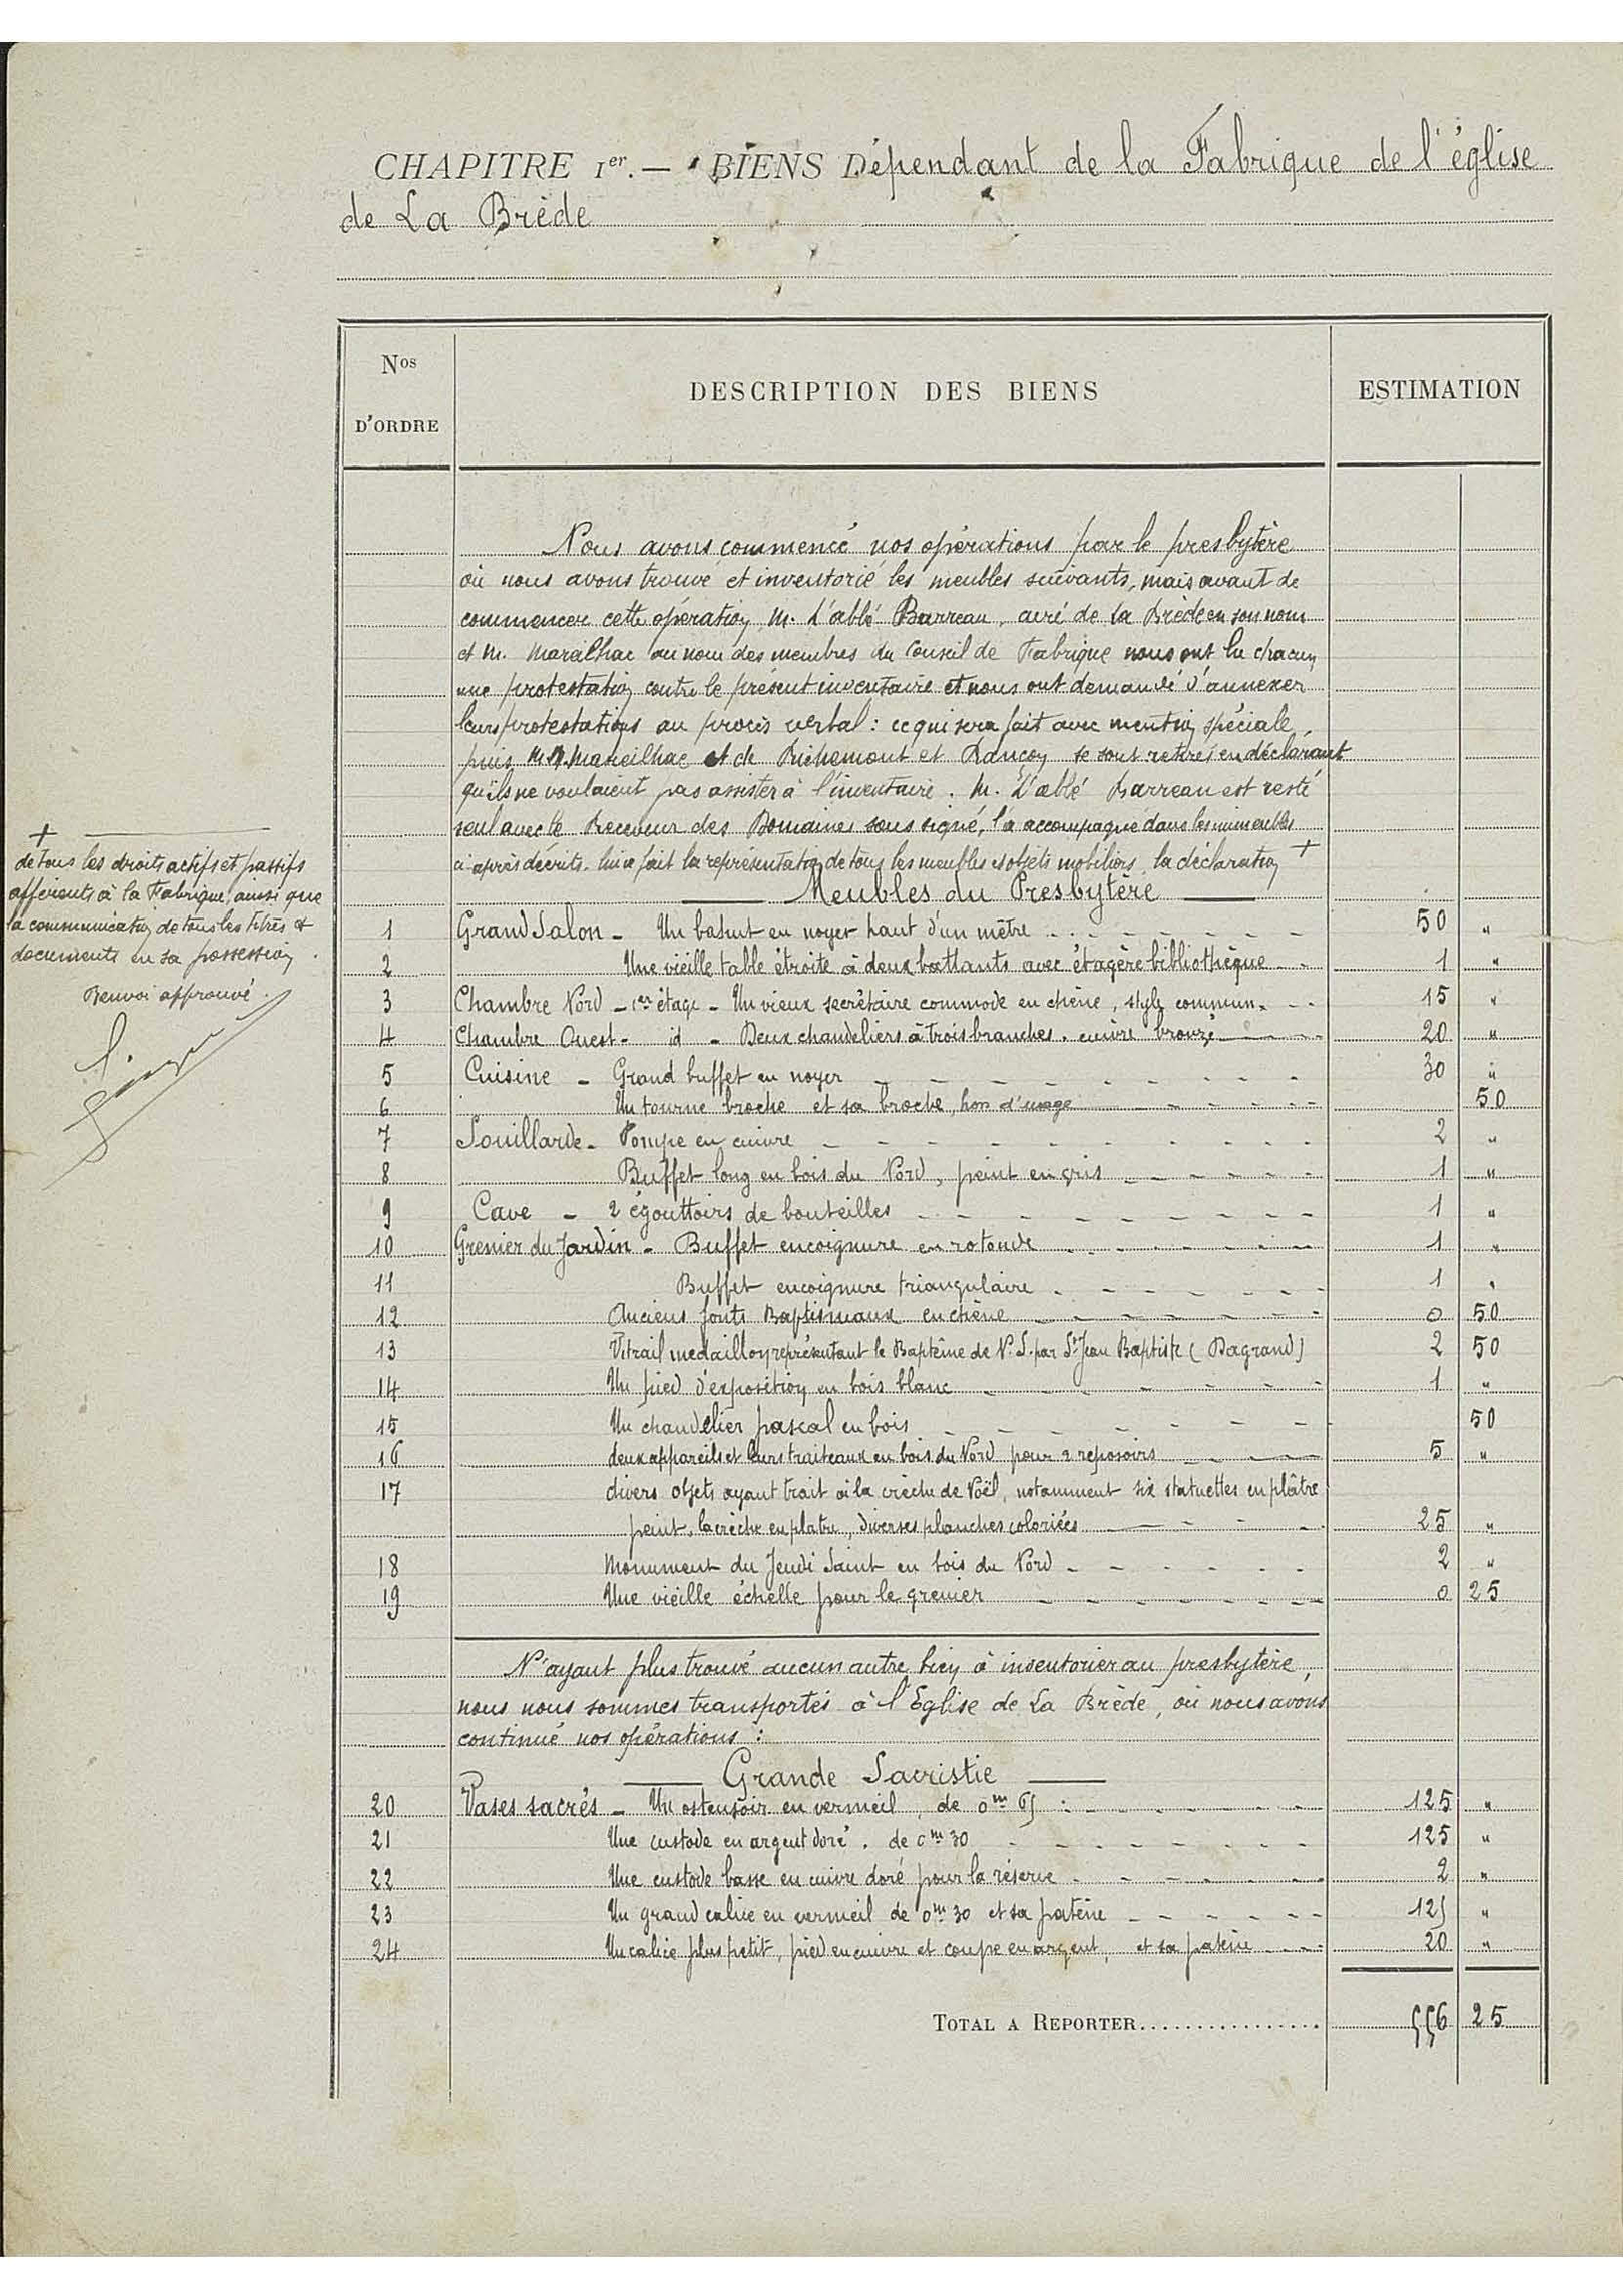 CHAPITRE Ier. — BIENS Dépendant de la Fabrique de l'église
de La Brède
Nos D'ORDRE
DESCRIPTION DES BIENS
ESTIMATION
Nous avons commencé nos opérations par le presbytère
où nous avons trouvé et inventorié les meubles suivants, mais avant de
commencer cette opération, M. L'abbé Barreau, curé de La Brède en son nom
et M. Mareilhac au nom des membres du Conseil de Fabrique nous ont lu chacun
une protestation contre le présent inventaire et nous ont demandé d'annexer
leurs protestations au procès verbal : ce qui sera fait avec mention spéciale,
puis M.M. Mareilhac et de Richemont et Rançon se sont retirés en déclarant
qu'ils ne voulaient pas assister à l'inventaire. M. L'abbé Barreau est resté
seul avec le Receveur des Domaines soussigné, l'a accompagné dans les immeubles
ci-après décrits. lui a fait la représentation de tous les meubles et objets mobiliers, la déclaration +
+
de tous les droits actifs et passifs
afférents à la Fabrique, ainsi que
la communication de tous les titres et
documents en sa possession.
Renvoi approuvé.
Meubles du Presbytère
1 Grand Salon - Un bahut en noyer haut d'un mètre 50 "
2 Une vieille table étroite à deux battants avec étagère bibliothèque 1 "
3 Chambre Nord - 1er étage - Un vieux secrétaire commode en chêne, style commun. 15 "
4 Chambre Ouest - id - Deux chandeliers à trois branches. cuivre bronzé 20 "
5 Cuisine - Grand buffet en noyer 30 "
6 Un tourne broche et sa broche, hors d'usage 50
7 Souillarde - Pompe en cuivre 2 "
8 Buffet long en bois du Nord, peint en gris 1 "
9 Cave - 2 égouttoirs de bouteilles 1 "
10 Grenier du Jardin - Buffet encoignure en rotonde 1 "
11 Buffet encoignure triangulaire 1 "
12 Anciens fonts Baptismaux en chêne 0 50
13 Vitrail medaillon représentant le Baptême de N. S. par St Jean Baptiste (Dagrand) 2 50
14 Un pied d'exposition en bois blanc 1 "
15 Un chandelier pascal en bois 50
16 deux appareils et leurs traiteaux en bois du Nord pour 2 reposoirs 5 "
17 divers objets ayant trait à la crèche de Noël, notamment six statuettes en plâtre
peint, la crèche en platre, diverses planches coloriées 25 "
18 Monument du Jeudi Saint en bois du Nord 2 "
19 Une vieille échelle pour le grenier 0 25
N'ayant plus trouvé aucun autre bien à inventorier au presbytère,
nous nous sommes transportés à l'Eglise de La Brède, où nous avons
continué nos opérations :
Grande Sacristie
20 Vases sacrés - Un ostensoir en vermeil, de 0m 65 : 125 "
21 Une custode en argent doré. de 0m 30 125 "
22 Une custode basse en cuivre doré pour la réserve 2 "
23 Un grand calice en vermeil de 0m 30 et sa patène 125 "
24 Un calice plus petit, pied en cuivre et coupe en argent, et sa patène 20 "
TOTAL A REPORTER................ 556 25